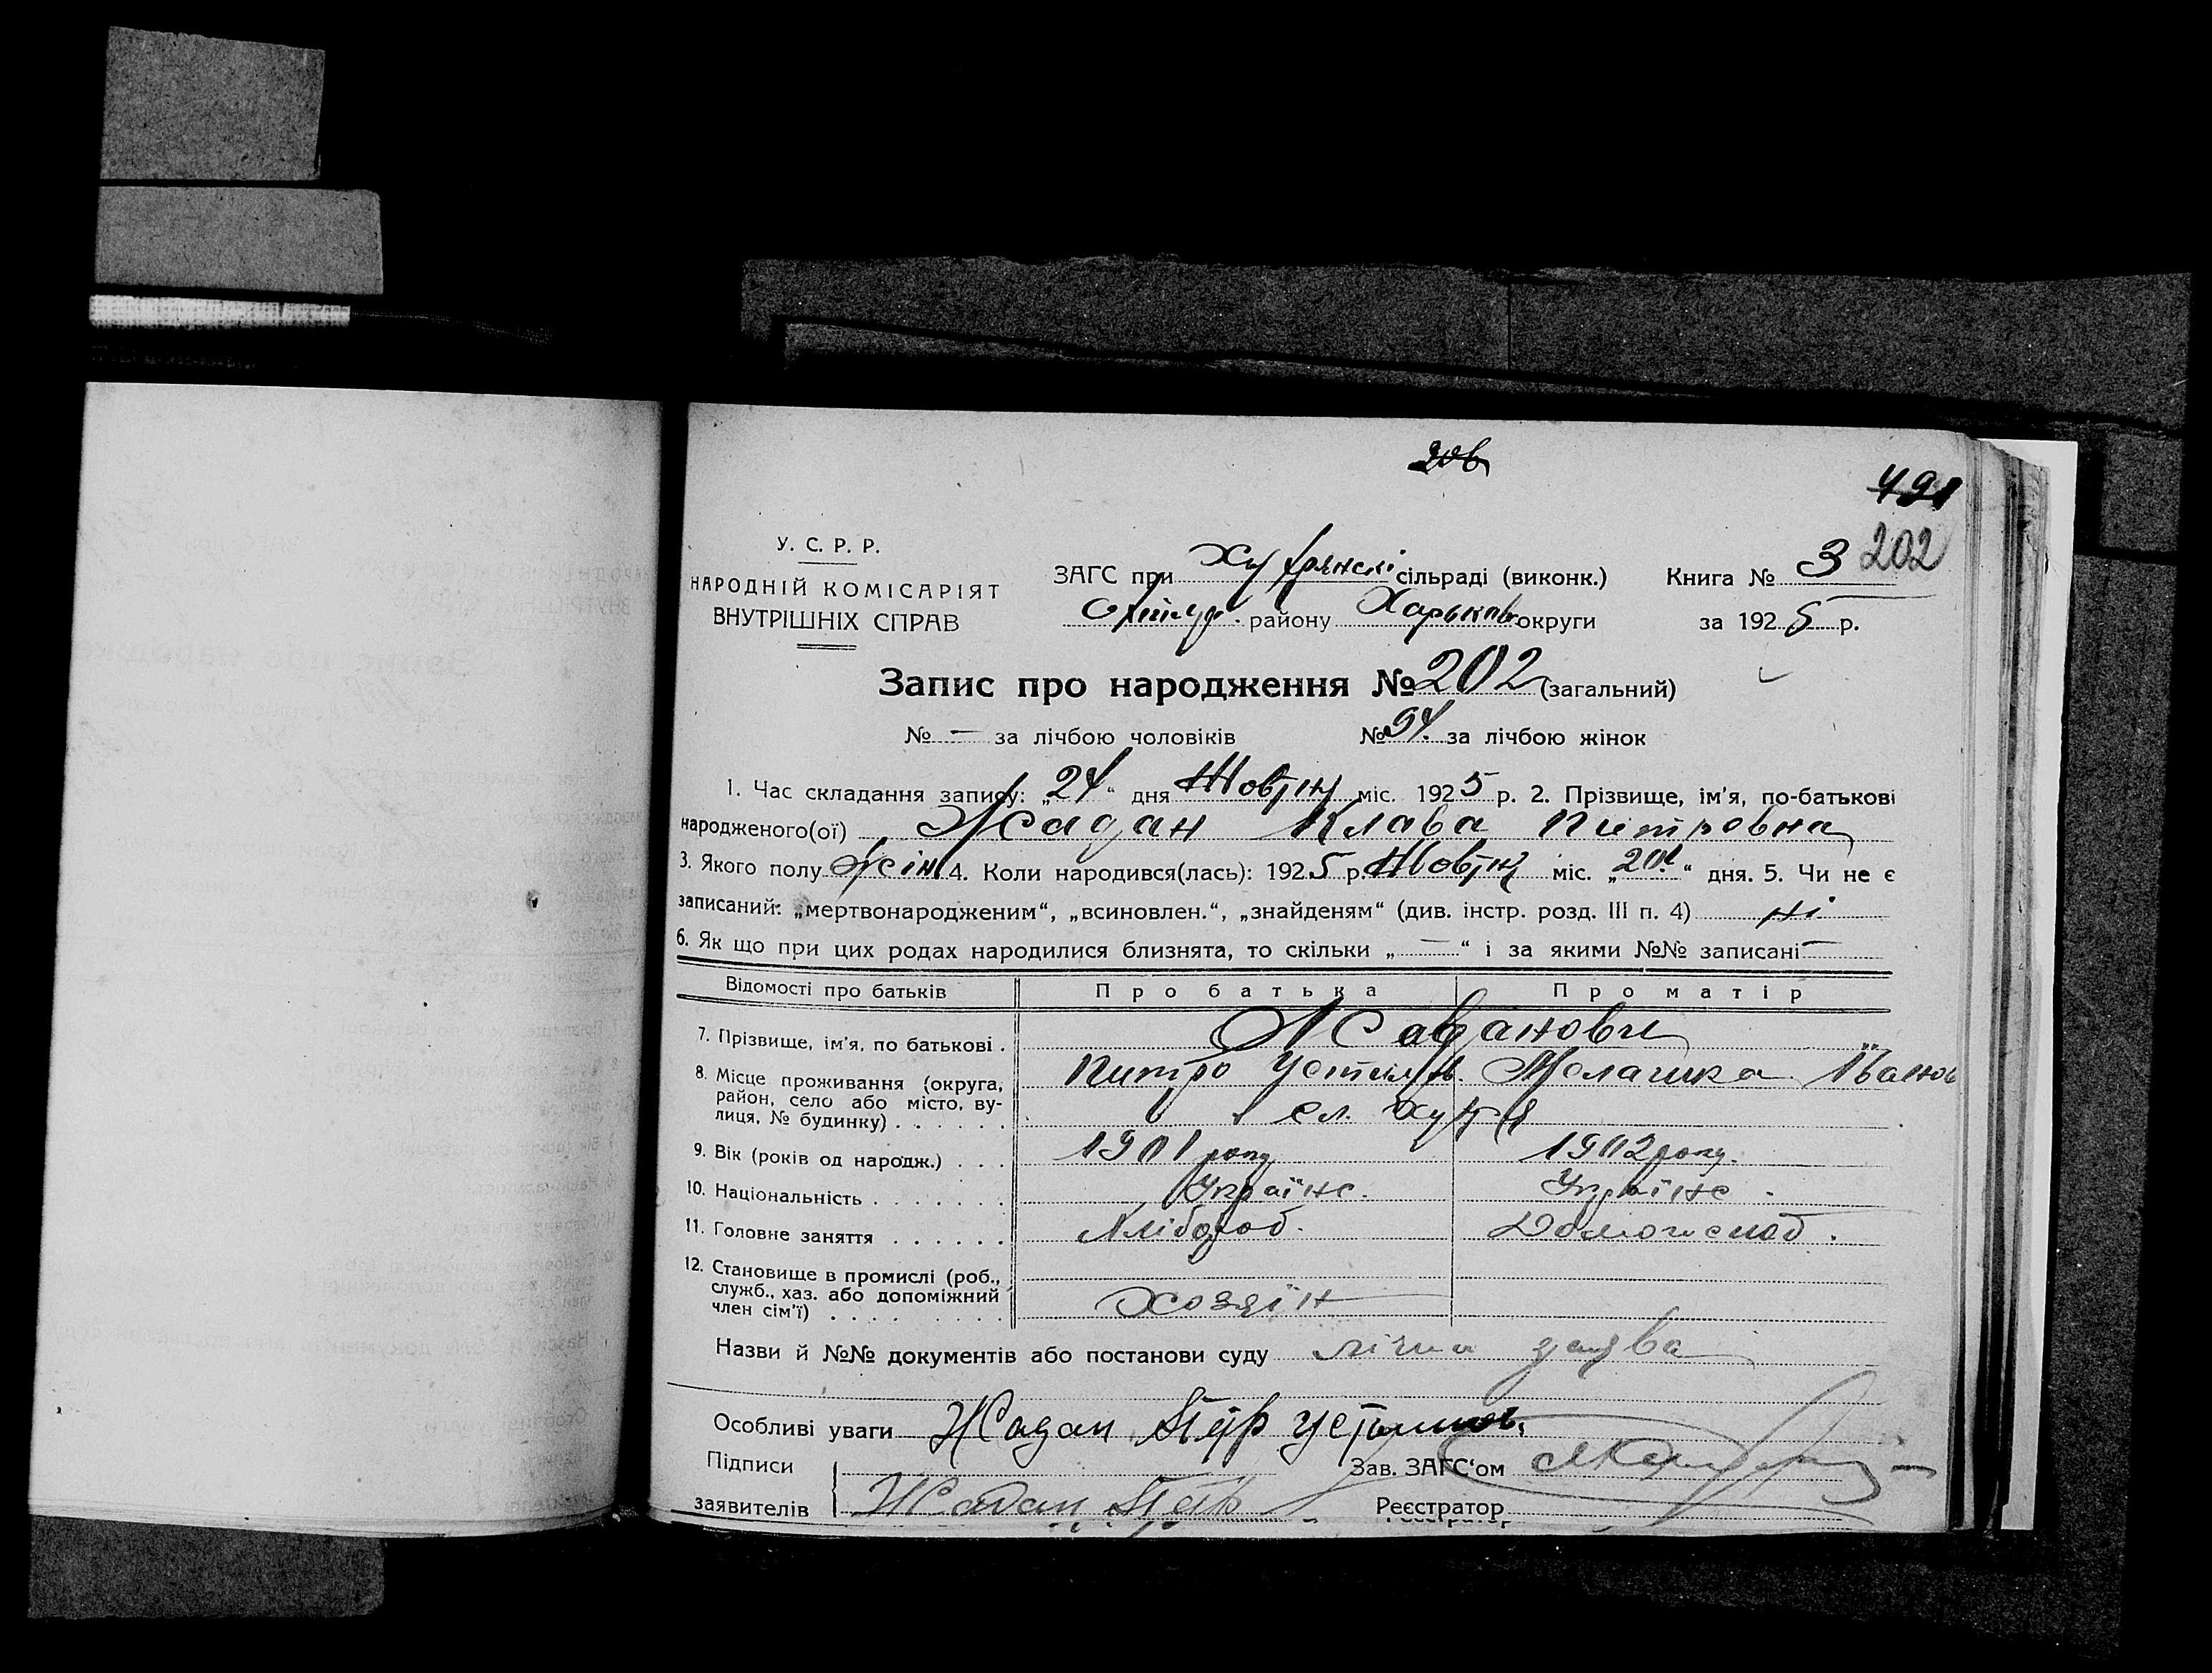 206
491
202
У. С. Р. Р.
НАРОДНІЙ КОМІСАРІЯТ
ВНУТРІШНІХ СПРАВ
ЗАГС при сільраді (виконк.) Книга № 3
району Харьков. округи за 1925 р.
Запис про народження № 202 (загальний)
№ — за лічбою чоловіків № 94. за лічбою жінок
1. Час складання запису: „24“ дня Жовтн міс. 1925 р. 2. Прізвище, ім'я, по-батькові
народженого(ої) Жадан Клава Питровна
3. Якого полу жін 4. Коли народився(лась): 1925 р. Жовтн міс. „20“ дня. 5. Чи не є
записаний: „мертвонародженим“, „всиновлен.“, „знайденям“ (див. інстр. розд. III п. 4) ні
6. Як що при цих родах народилися близнята, то скільки „—“ і за якими №№ записані —
Відомості про батьків Про батька Про матір
7. Прізвище, ім'я, по батькові . Жаданови
Питро Устимов. Мелашка Іванов
8. Місце проживання (округа,
район, село або місто, ву-
лиця, № будинку) . . . . . . сл. Хутря
9. Вік (років од народж.) . . . 1901 року 1902 року.
10. Національність . . . . . . . Українс. Українс.
11. Головне заняття . . . . . . Хлібороб. Домогоспод.
12. Становище в промислі (роб.,
служб., хаз. або допоміжний
член сім'ї) . . . . . . . . Хозяїн
Назви й №№ документів або постанови суду заява
Особливі уваги Жадан Устимов.
Підписи
заявителів Жадан
Зав. ЗАГС‘ом
Реєстратор